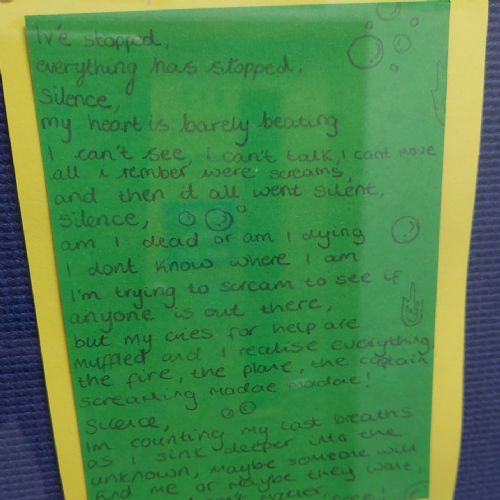 I've stopped,
everything has stopped.
Silence,
my heart is barely beating
I can't see, I can't talk, I cant move
all i rember were screams,
and then it all went silent,
silence,
am I dead or am I dying
I dont know where I am
I'm trying to scream to see if
anyone is out there,
but my cries for help are
muffled and I realise everything
the fire, the plane, the captain
screaming madae madae!
Silence,
Im counting my last breaths
as I sink deeper into the
unknown, maybe someone will
find me or maybe they wont,